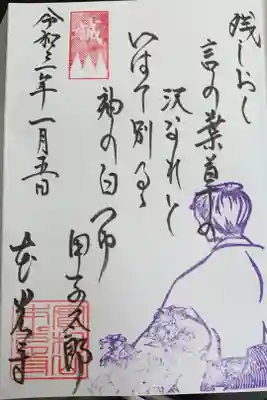 残しおく
言の葉草の
沢なれと
いはて別るる
袖の白つゆ
甲子太郎
誠
令和三年一月五日
本光寺